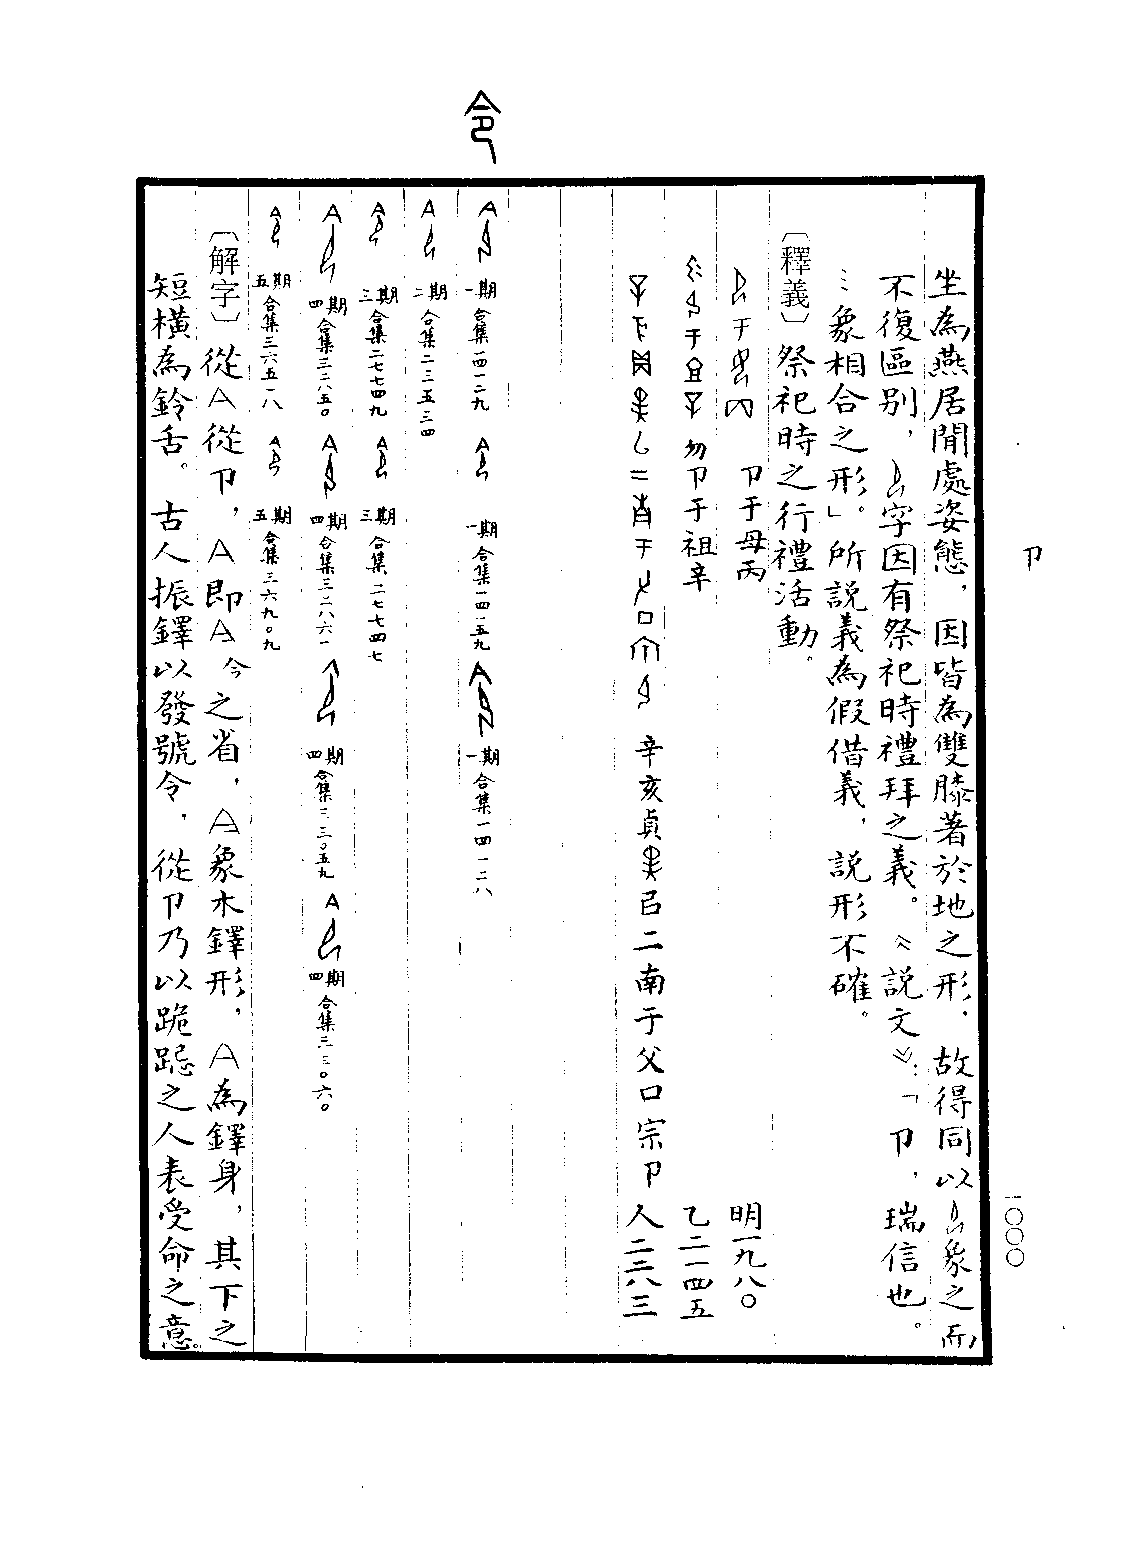 令
卩
一〇〇〇
坐為燕居閒處姿態，因皆為雙膝著於地之形，故得同以象之而
不復區别，字因有祭祀時禮拜之義。《說文》：「卩，瑞信也。
⋮象相合之形。」所說義為假借義，說形不確。
〔釋義〕祭祀時之行禮活動。
卩于母丙 明一九八〇
勿卩于祖辛 乙二一四五
辛亥貞㠯二南于父口宗卩 人二二八三
一期 合集一四一二九 一期 合集一四一五九 一期 合集一四一二八
二期 合集二三五三四
三期 合集二七七四九 三期 合集二七七四七
四期 合集三二八五〇 四期 合集三二八六一 四期 合集三三〇五九 四期 合集三三〇六〇
五期 合集三六五一八 五期 合集三六九〇九
〔解字〕從A從卩，A即今之省，A象木鐸形，A為鐸身，其下之
短橫為鈴舌。古人振鐸以發號令，從卩乃以跪跽之人表受命之意。